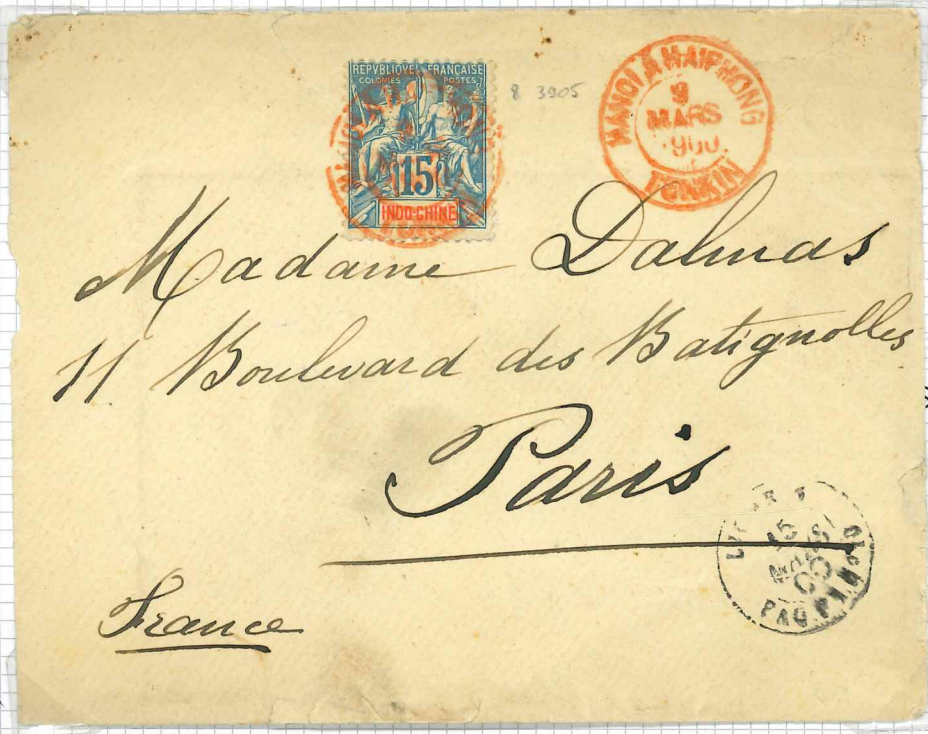 REPVBLIQUE FRANÇAISE
COLONIES POSTES
15
INDO-CHINE
8 3905
HANOI À HAIPHONG
9
MARS
900
TONKIN
Madame Dalmas
11 Boulevard des Batignolles
Paris
France
15
MARS
00
PAQ